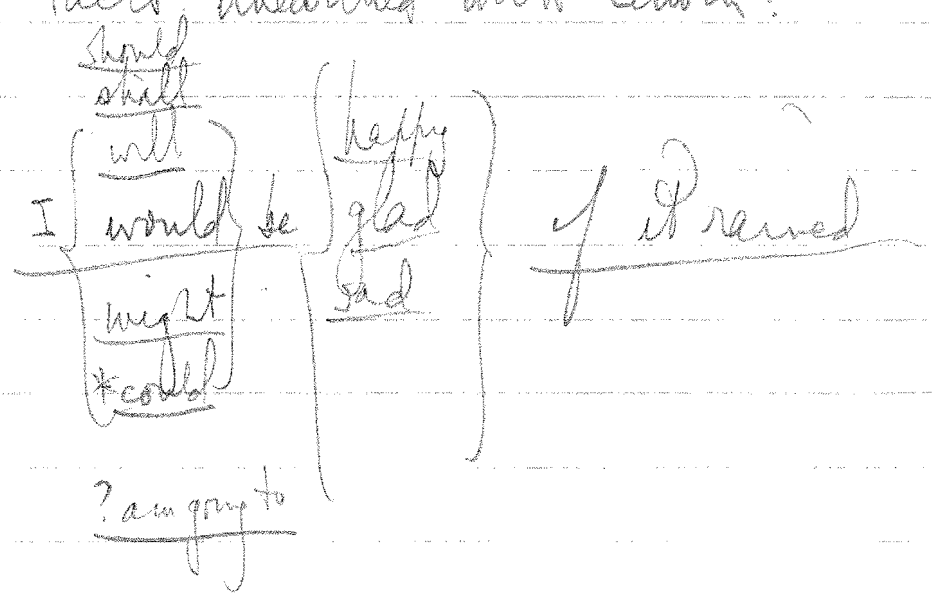 should
shall
will
I would be
might
*could
? am going to
happy
glad
sad
if it rained